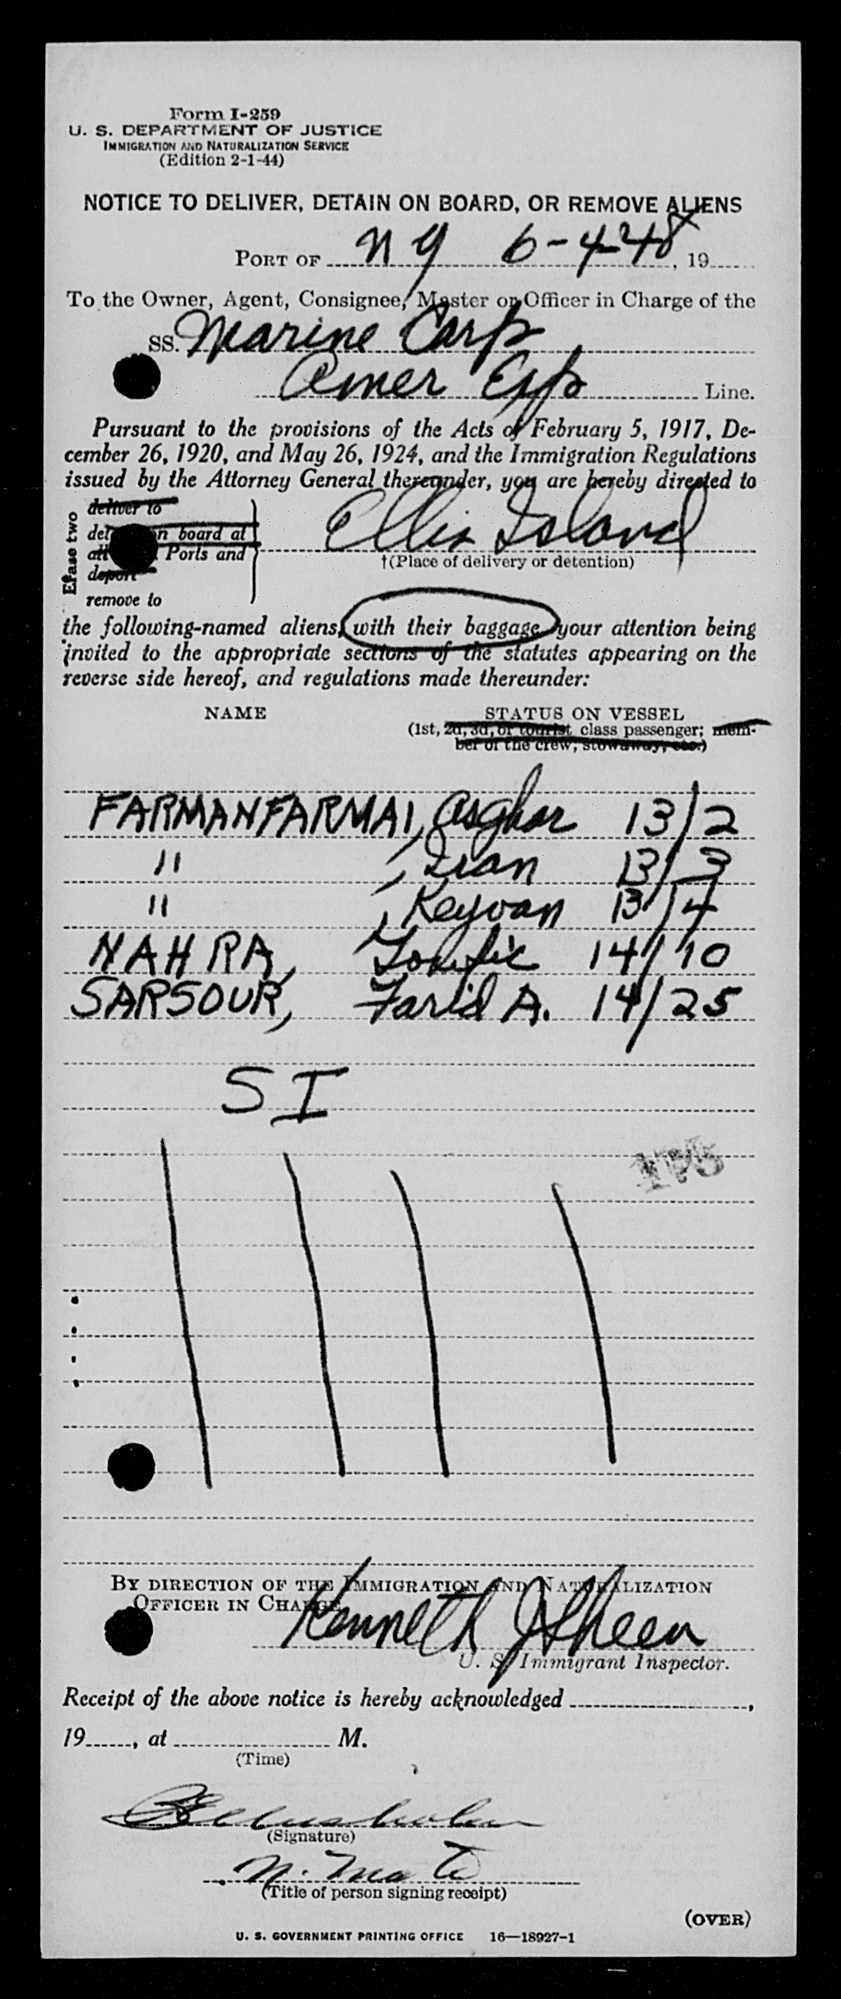 Form I-259
U. S. DEPARTMENT OF JUSTICE
IMMIGRATION AND NATURALIZATION SERVICE
(Edition 2-1-44)
NOTICE TO DELIVER, DETAIN ON BOARD, OR REMOVE ALIENS
PORT OF N Y 6-4-48, 19
To the Owner, Agent, Consignee, Master or Officer in Charge of the
SS. Marine Carp
Amer Exp Line.
Pursuant to the provisions of the Acts of February 5, 1917, De-
cember 26, 1920, and May 26, 1924, and the Immigration Regulations
issued by the Attorney General thereunder, you are hereby directed to
Erase two
deliver to
n board at
all Ports and
deport
remove to
Ellis Island
†(Place of delivery or detention)
the following-named aliens, with their baggage, your attention being
invited to the appropriate sections of the statutes appearing on the
reverse side hereof, and regulations made thereunder:
NAME STATUS ON VESSEL
(1st, 2d, 3d, or tourist class passenger; mem-
ber of the crew, stowaway, etc.)
FARMANFARMAI, Asghar 13/2
" , Iran 13/3
" , Keyvan 13/4
NAHRA, Toufic 14/10
SARSOUR, Farid A. 14/25
SI
BY DIRECTION OF THE IMMIGRATION AND NATURALIZATION
OFFICER IN CHARGE
Kenneth J Sheen
U. S. Immigrant Inspector.
Receipt of the above notice is hereby acknowledged ,
19 , at M.
(Time)
(Signature)
(Title of person signing receipt)
(OVER)
U. S. GOVERNMENT PRINTING OFFICE 16—18927-1